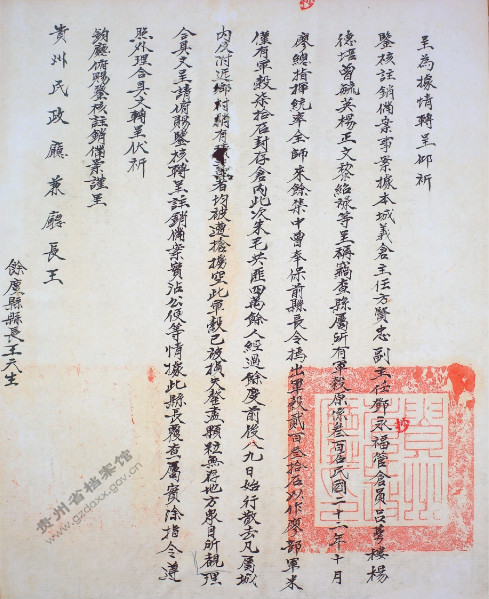 呈為據情轉呈仰祈
鑒核註銷備案事案據本城義倉主任方賢忠副主任鄧永福管倉員呂夢樓楊
德培曾毓英楊正文黎紹祿等呈稱竊查縣屬所有軍穀原係叁百石民國二十二年十月
廖總指揮統率全師來餘集中曾奉保前縣長令撝出軍穀貳百叁拾石以作廖部軍米
僅有軍穀柒拾石封存倉內此次朱毛共匪四萬餘人經過餘慶前後八九日始行散去凡屬城
內及附近鄉村稍有 者均被遭搶擄空此軍穀已被損失罄盡顆粒無存地方衆目所覩理
合具文呈請俯賜鑒核轉呈註銷備案實沾公便等情據此縣長覆查屬實除指令遵
照外理合具文轉呈伏祈
鈞廳俯賜鑒核註銷備案謹呈
貴州民政廳兼廳長王
餘慶縣縣長王天生
抄
貴州省档案馆
www.gzdaxx.gov.cn